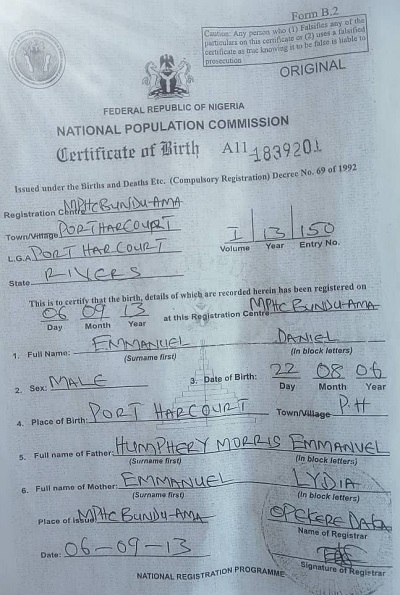 Form B.2
Caution: Any person who (1) Falsifies any of the
particulars on this certificate or (2) uses a falsified
certificate as true knowing it to be false is liable to
prosecution
ORIGINAL
FEDERAL REPUBLIC OF NIGERIA
NATIONAL POPULATION COMMISSION
Certificate of Birth A11 1839201
Issued under the Births and Deaths Etc. (Compulsory Registration) Decree No. 69 of 1992
Registration Centre MPHC BUNDU-AMA
Town/Village PORT HARCOURT
L.G.A PORT HARCOURT
State RIVERS
I 13 150
Volume Year Entry No.
This is to certify that the birth, details of which are recorded herein has been registered on
06 09 13 at this Registration Centre MPHC BUNDU-AMA
Day Month Year
1. Full Name: EMMANUEL DANIEL
(Surname first) (In block letters)
2. Sex: MALE 3. Date of Birth: 22 08 06
Day Month Year
4. Place of Birth: PORT HARCOURT Town/Village P.H
5. Full name of Father: HUMPHERY MORRIS EMMANUEL
(Surname first) (In block letters)
6. Full name of Mother: EMMANUEL LYDIA
(Surname first) (In block letters)
Place of Issue: MPHC BUNDU-AMA
Name of Registrar
Date: 06-09-13
Signature of Registrar
NATIONAL REGISTRATION PROGRAMME